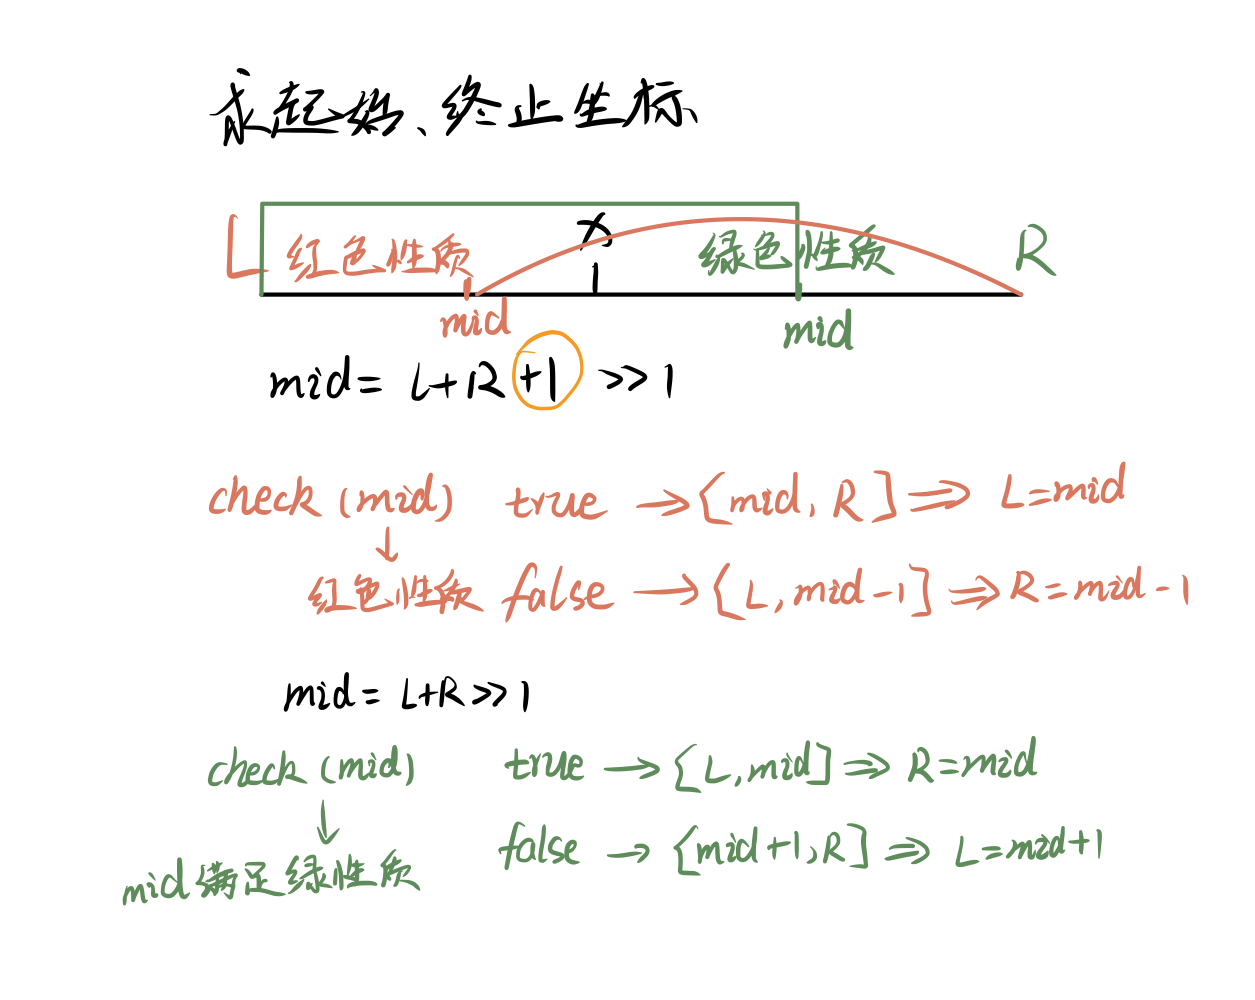 求起始、终止坐标
L 红色性质 x 绿色性质 R
mid mid
mid = L+R +1 >> 1
check (mid) true → [mid, R] ⇒ L=mid
↓
红色性质 false → [L, mid-1] ⇒ R=mid-1
mid = L+R >> 1
check (mid) true → [L, mid] ⇒ R=mid
↓
mid满足绿性质 false → [mid+1, R] ⇒ L=mid+1